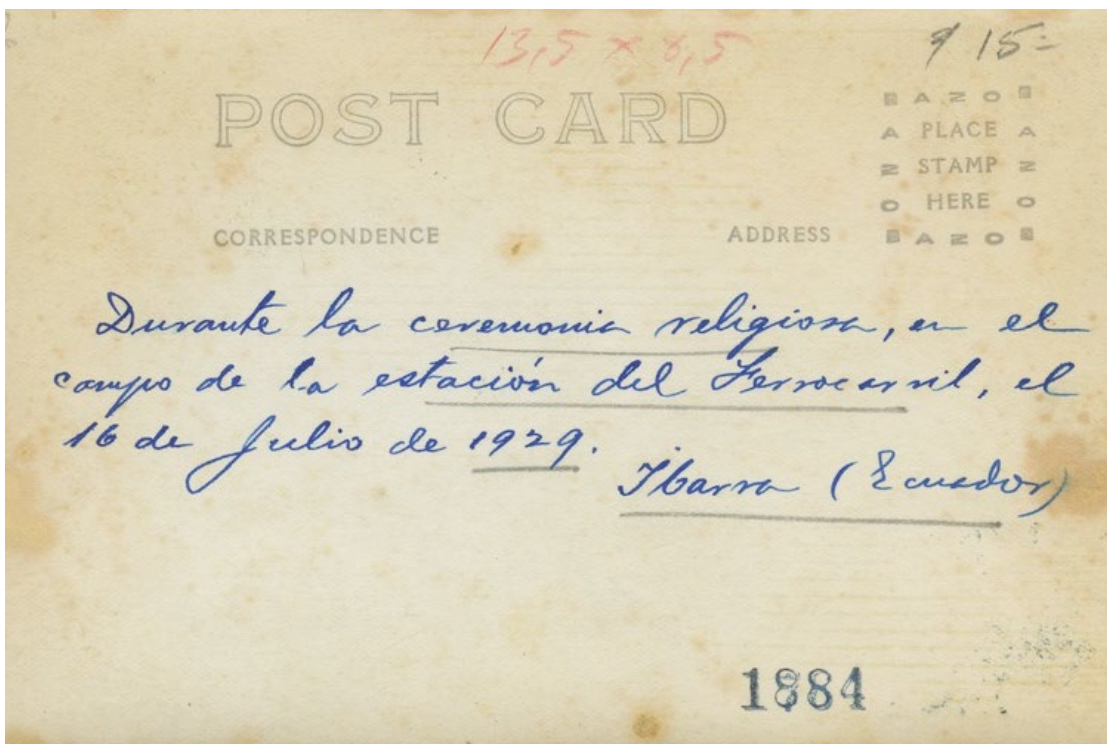 13,5 × 8,5
15=
POST CARD
AZO
PLACE
STAMP
HERE
AZO
CORRESPONDENCE
ADDRESS
Durante la ceremonia religiosa, en el
campo de la estación del Ferrocarril, el
16 de Julio de 1929.
Ibarra (Ecuador)
1884